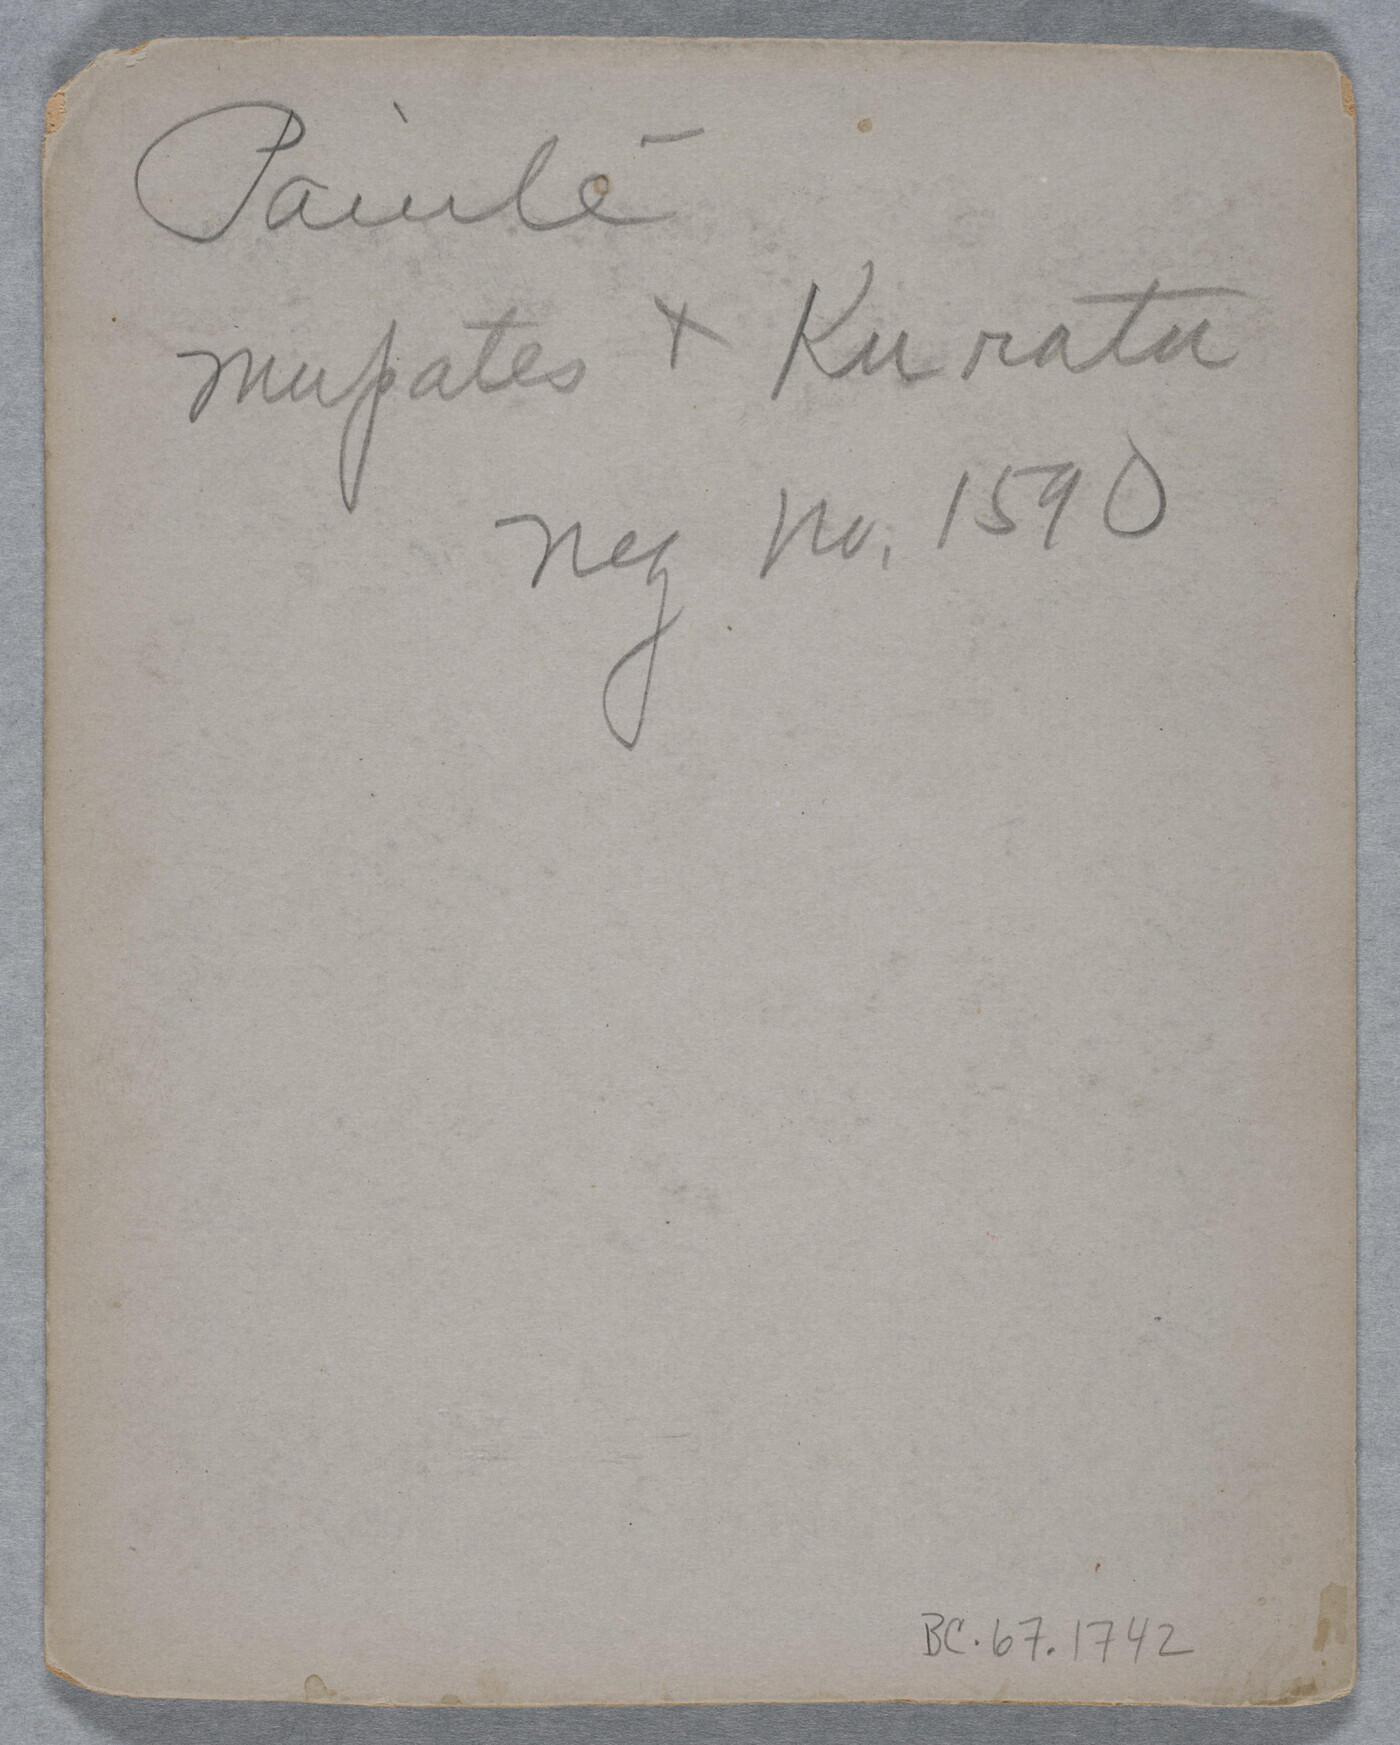 Paiute
Mupates + Kuratu
Neg no. 1590
BC.67.1742